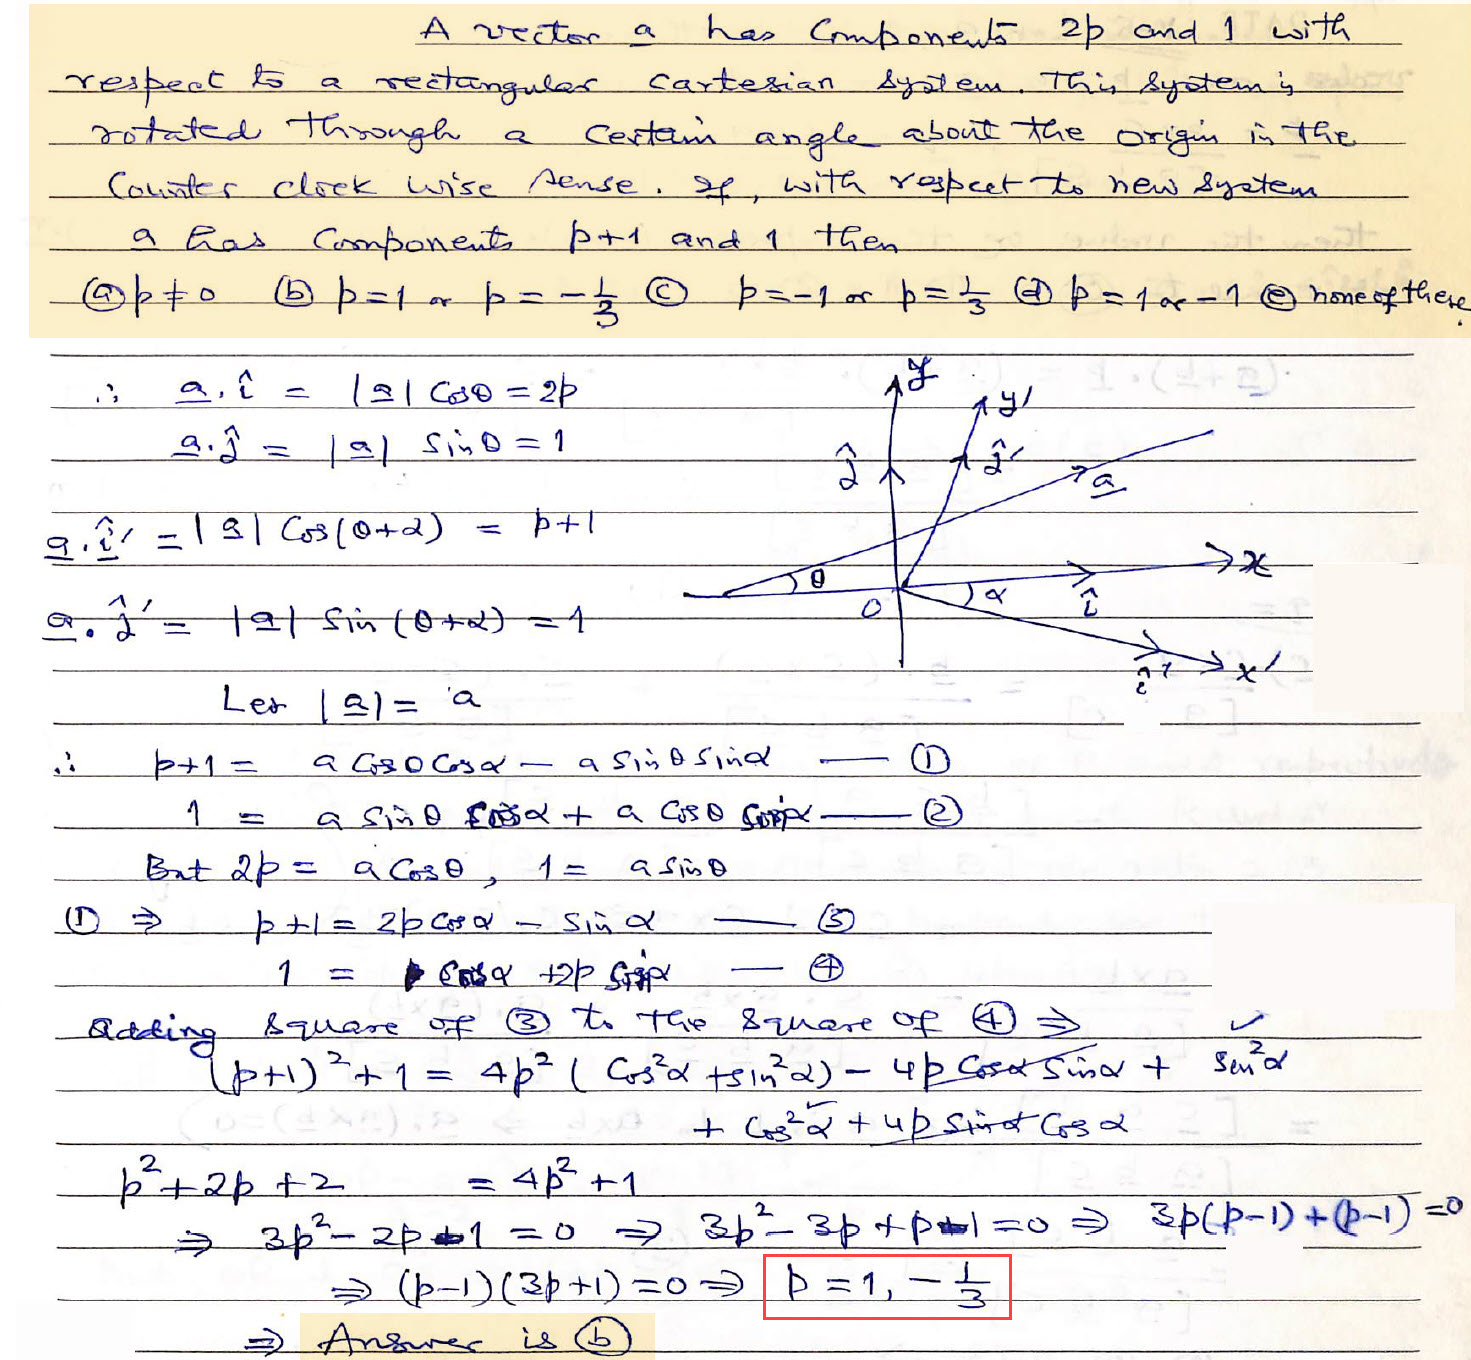 A vector a has Components 2p and 1 with
respect to a rectangular Cartesian System. This System is
rotated Through a Certain angle about the origin in the
Counter clock wise sense. If, with respect to new System
a has Components p+1 and 1 then
(a) p≠0 (b) p=1 or p=-1/3 (c) p=-1 or p=1/3 (d) p=1 or -1 (e) none of these.
∴ a.î = |a| Cosθ = 2p
a.ĵ = |a| Sinθ = 1
a.î′ = |a| Cos(θ+α) = p+1
a.ĵ′ = |a| Sin(θ+α) = 1
y
y′
ĵ
ĵ′
a
θ
O
α
î
x
î′
x′
Let |a| = a
∴ p+1 = a Cosθ Cosα - a Sinθ Sinα — (1)
1 = a Sinθ Cosα + a Cosθ Sinα — (2)
But 2p = a Cosθ, 1 = a Sinθ
(1) ⇒ p+1 = 2p Cosα - Sinα — (3)
1 = Cosα + 2p Sinα — (4)
Adding Square of (3) to the Square of (4) ⇒
(p+1)² + 1 = 4p² (Cos²α + Sin²α) - 4p Cosα Sinα + Sin²α
+ Cos²α + 4p Sinα Cosα
p² + 2p + 2 = 4p² + 1
⇒ 3p² - 2p - 1 = 0 ⇒ 3p² - 3p + p - 1 = 0 ⇒ 3p(p-1) + (p-1) = 0
⇒ (p-1)(3p+1) = 0 ⇒ p = 1, -1/3
⇒ Answer is (b)